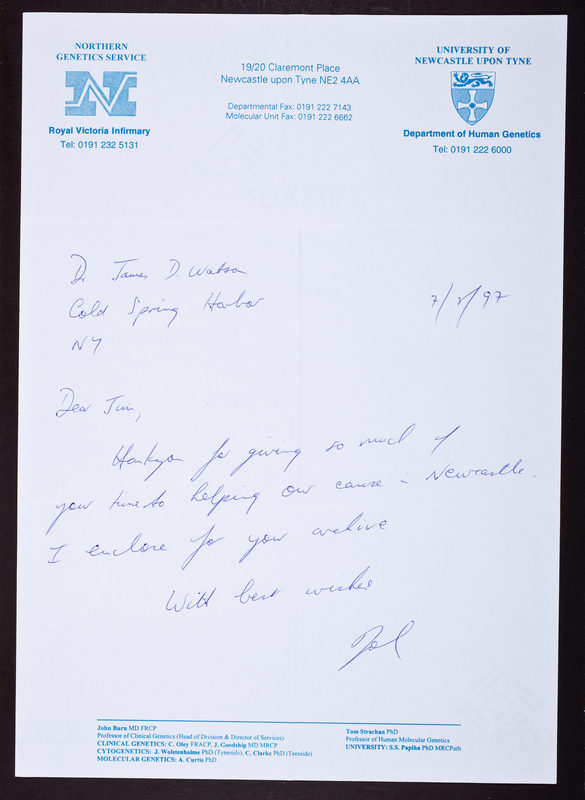 NORTHERN
GENETICS SERVICE
Royal Victoria Infirmary
Tel: 0191 232 5131
19/20 Claremont Place
Newcastle upon Tyne NE2 4AA
Departmental Fax: 0191 222 7143
Molecular Unit Fax: 0191 222 6662
UNIVERSITY OF
NEWCASTLE UPON TYNE
Department of Human Genetics
Tel: 0191 222 6000
Dr James D. Watson
Cold Spring Harbor
NY
7/ /97
Dear Jim,
Thankyou for giving so much of
your time to helping our cause in Newcastle.
I enclose for your archive
With best wishes
John Burn MD FRCP
Professor of Clinical Genetics (Head of Division & Director of Services)
CLINICAL GENETICS: C. Oley FRACP, J. Goodship MD MRCP
CYTOGENETICS: J. Wolstenholme PhD (Tyneside), C. Clarke PhD (Teesside)
MOLECULAR GENETICS: A. Curtis PhD
Tom Strachan PhD
Professor of Human Molecular Genetics
UNIVERSITY: S.S. Papiha PhD MRCPath